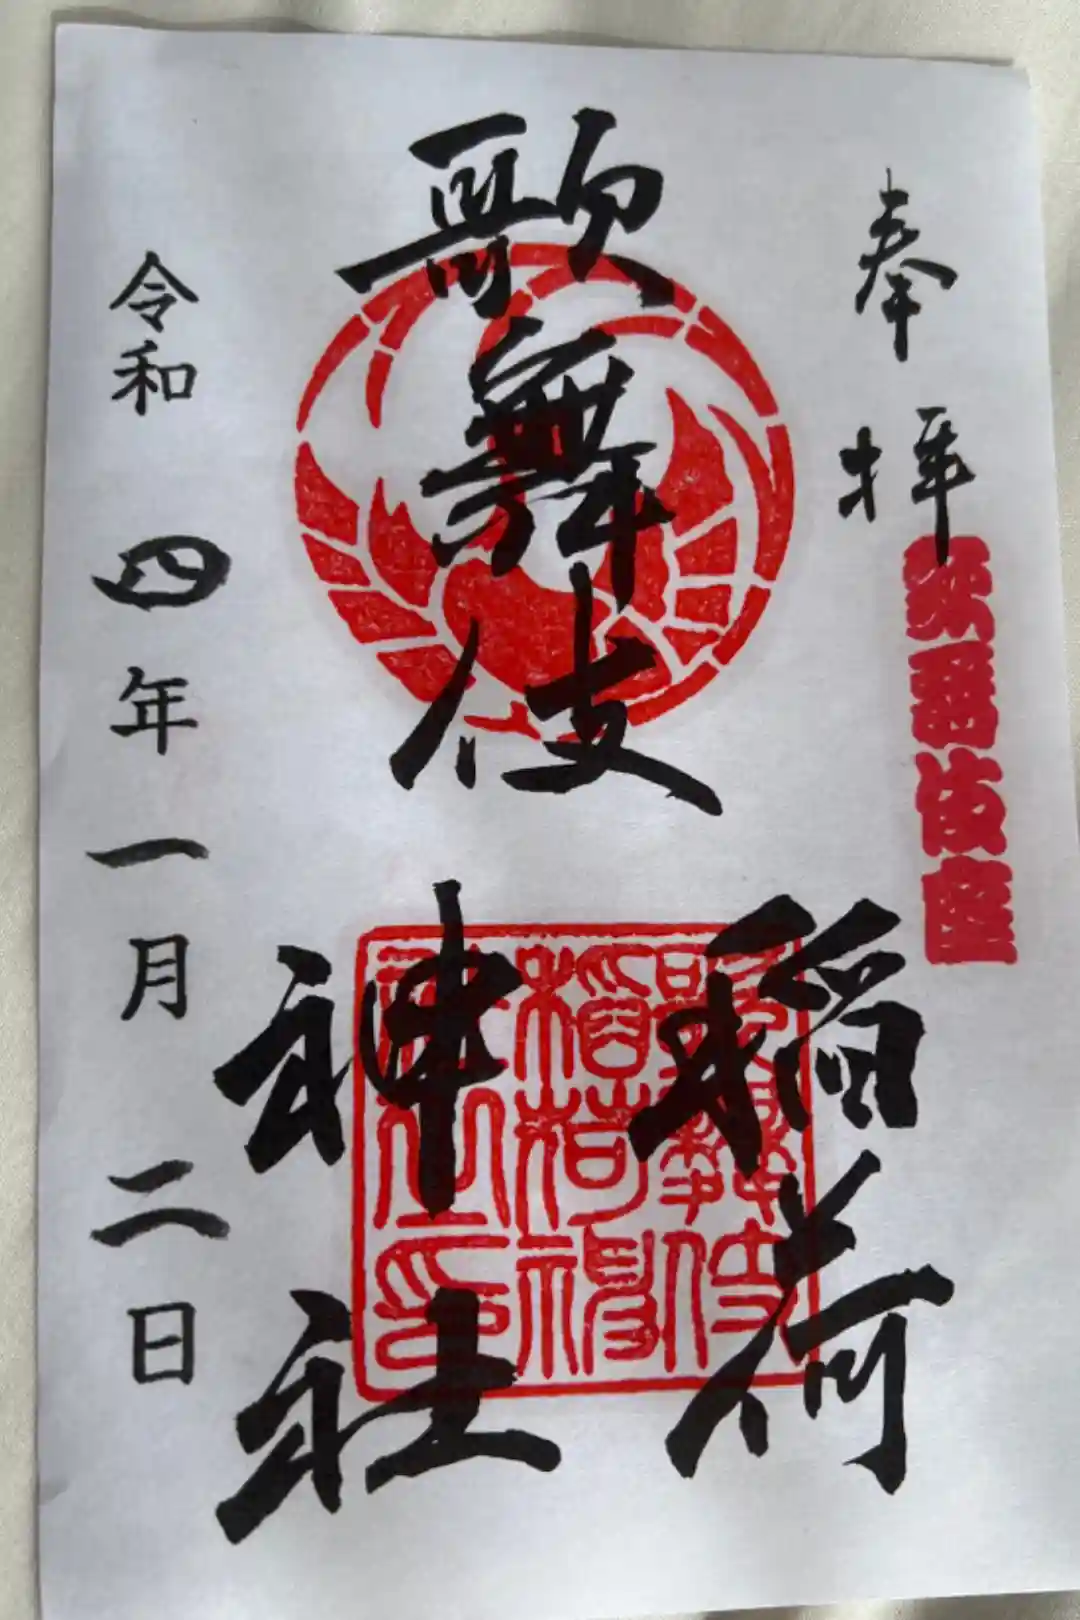 奉拝
歌舞伎座
歌舞伎
稲荷
神社
歌舞伎
稲荷神
社印
令和四年一月二日